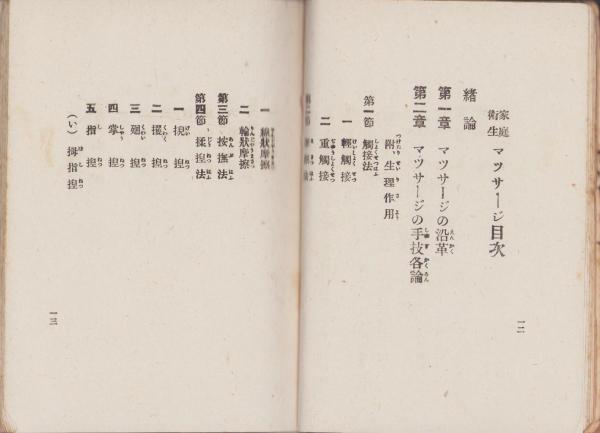 家庭衛生 マツサージ目次
緒論
第一章 マツサージの沿革
第二章 マツサージの手技各論
附、生理作用
第一節 觸接法
一 輕觸接
二 重觸接
一二
一 線狀摩擦
二 輪狀摩擦
第三節 按撫法
第四節 揉捏法
一
二
三 廻捏
四 掌捏
五 指捏
(い) 拇指捏
一三